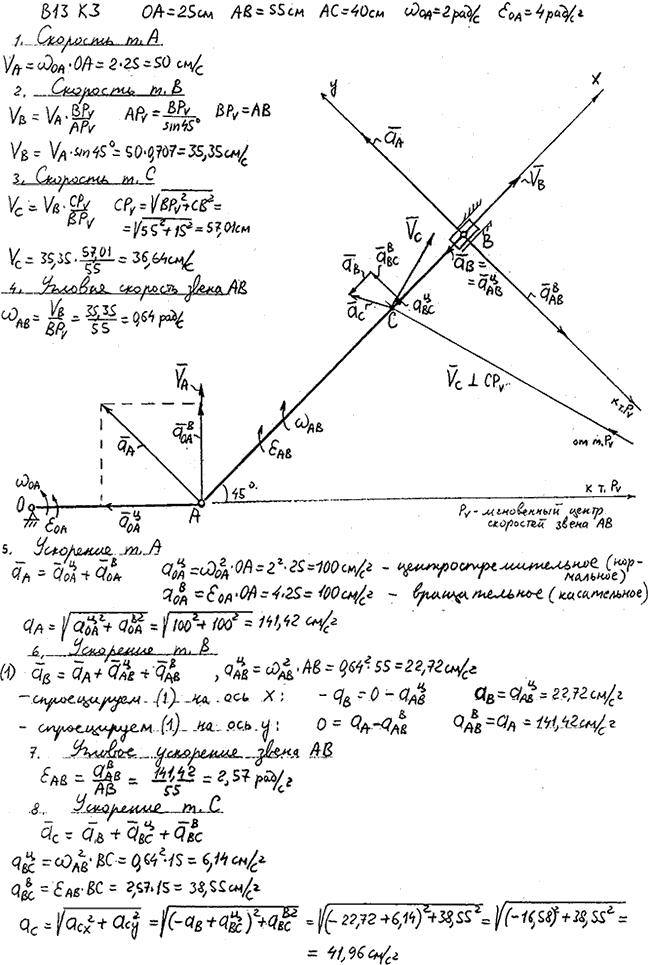 В13 К3 OA=25см AB=55см AC=40см ω_OA=2рад/с ε_OA=4рад/с²
1. Скорость т. А
V_A=ω_OA·OA=2·25=50 см/с
2. Скорость т. В
V_B=V_A·BP_V/AP_V AP_V=BP_V/sin45° BP_V=AB
V_B=V_A·sin45°=50·0,707=35,35см/с
3. Скорость т. С
V_C=V_B·CP_V/BP_V CP_V=√(BP_V²+CB²)=
=√(55²+15²)=57,01см
V_C=35,35·57,01/55=36,64см/с
4. Угловая скорость звена АВ
ω_AB=V_B/BP_V=35,35/55=0,64 рад/с
y
x
a̅_A
V̅_B
B
V̅_C
a̅_B=
=a̅ᶣ_AB
a̅_B
a̅ᴮ_BC
a̅_C
a̅ᶣ_BC
C
a̅ᴮ_AB
V̅_C ⊥ CP_V
к т. P_V
от т. P_V
V̅_A
a̅_A
a̅ᴮ_OA
ω_AB
ε_AB
ω_OA
O
ε_OA
a̅ᶣ_OA
A
45°
к т. P_V
P_V - мгновенный центр
скоростей звена АВ
5. Ускорение т. А
a̅_A=a̅ᶣ_OA+a̅ᴮ_OA aᶣ_OA=ω²_OA·OA=2²·25=100см/с² - центростремительное (нор-
мальное)
aᴮ_OA=ε_OA·OA=4·25=100см/с² - вращательное (касательное)
a_A=√(aᶣ²_OA+aᴮ²_OA)=√(100²+100²)=141,42 см/с²
6. Ускорение т. В
(1) a̅_B=a̅_A+a̅ᶣ_AB+a̅ᴮ_AB , aᶣ_AB=ω²_AB·AB=0,64²·55=22,72см/с²
- спроецируем (1) на ось x: -a_B=0-aᶣ_AB a_B=aᶣ_AB=22,72см/с²
- спроецируем (1) на ось y: 0=a_A-aᴮ_AB aᴮ_AB=a_A=141,42см/с²
7. Угловое ускорение звена АВ
ε_AB=aᴮ_AB/AB=141,42/55=2,57 рад/с²
8. Ускорение т. С
a̅_C=a̅_B+a̅ᶣ_BC+a̅ᴮ_BC
aᶣ_BC=ω²_AB·BC=0,64²·15=6,14см/с²
aᴮ_BC=ε_AB·BC=2,57·15=38,55см/с²
a_C=√(a_Cx²+a_Cy²)=√((-a_B+aᶣ_BC)²+aᴮ²_BC)=√((-22,72+6,14)²+38,55²)=√((-16,58)²+38,55²)=
=41,96см/с²